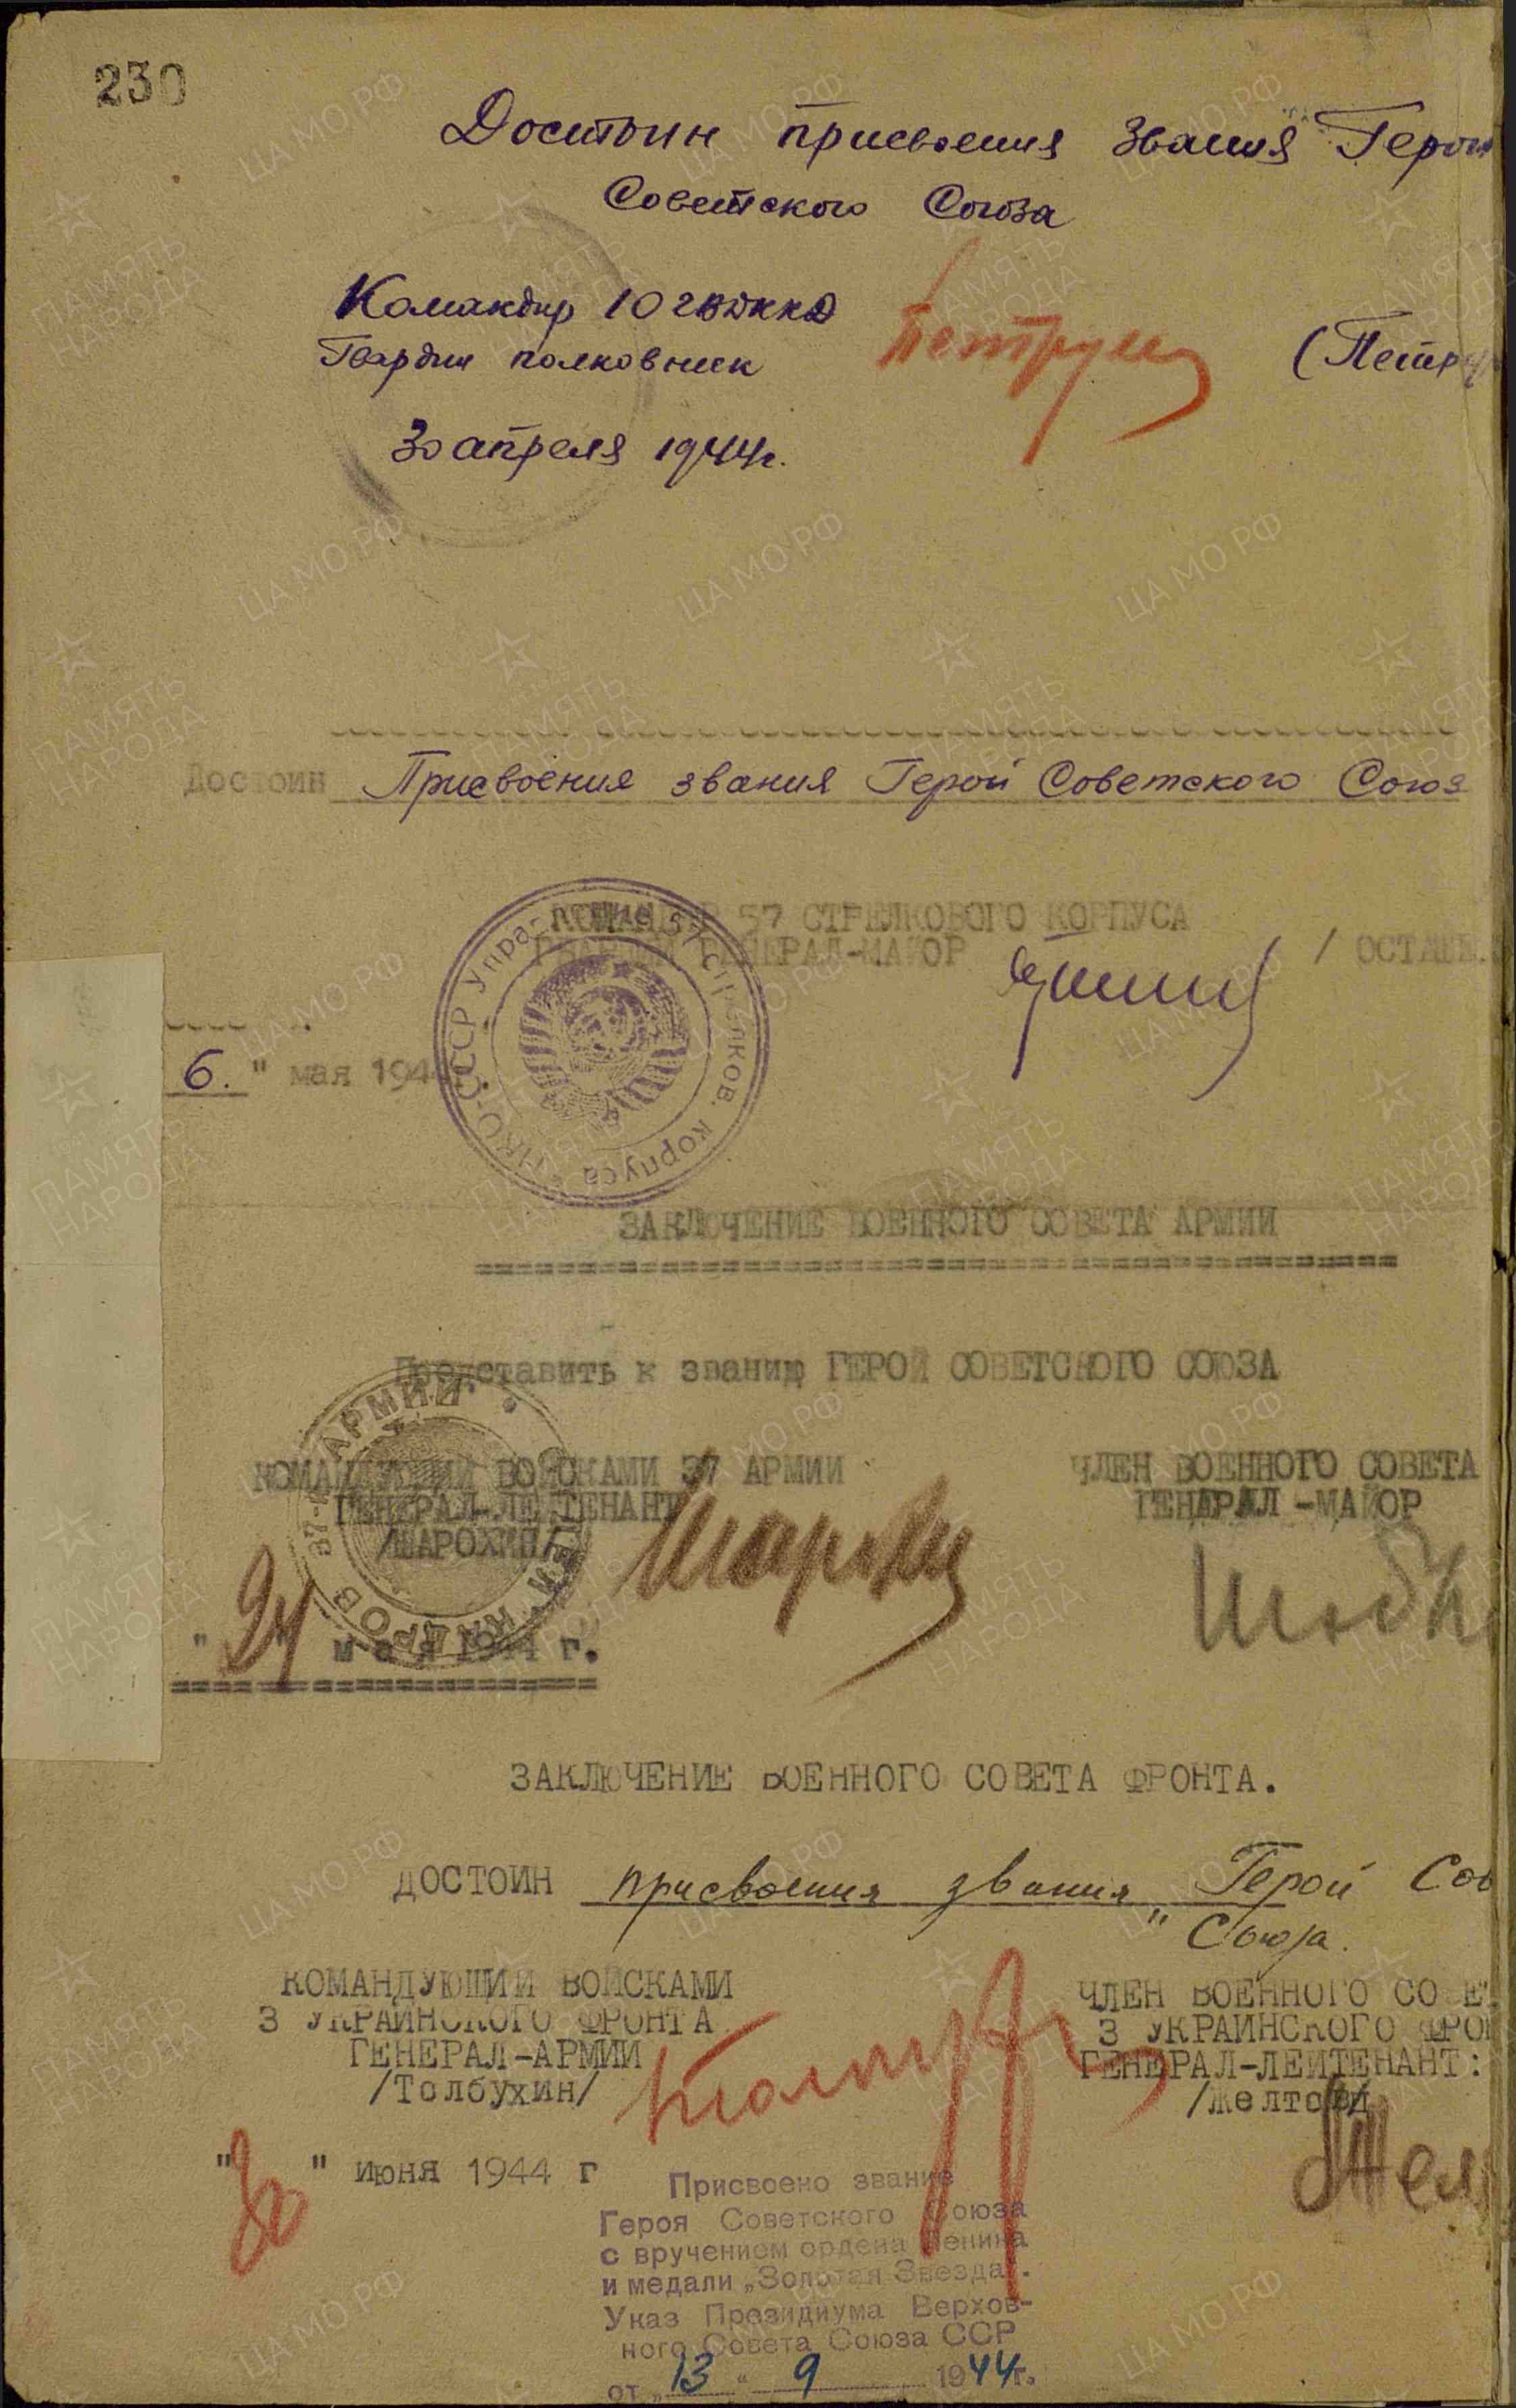 230
Достоин присвоения звания Героя
Советского Союза
Командир 10 гвдккд
Гвардии полковник
(Петру
30 апреля 1944г.
Достоин Присвоения звания Герой Советского Союз
КОМАНДИР 57 СТРЕЛКОВОГО КОРПУСА
ГВАРДИИ ГЕНЕРАЛ-МАЙОР / ОСТАШ
6. " мая 194
НКО-СССР Управление 57 стрелков. корпуса
ЗАКЛЮЧЕНИЕ ВОЕННОГО СОВЕТА АРМИИ
Представить к званию ГЕРОЙ СОВЕТСКОГО СОЮЗА
КОМАНДУЮЩИЙ ВОЙСКАМИ 37 АРМИИ ЧЛЕН ВОЕННОГО СОВЕТА
ГЕНЕРАЛ-ЛЕЙТЕНАНТ ГЕНЕРАЛ-МАЙОР
/ШАРОХИН/
"24" мая 1944 г.
ЗАКЛЮЧЕНИЕ ВОЕННОГО СОВЕТА ФРОНТА.
ДОСТОИН присвоения звания Герой Сов
" Союза.
КОМАНДУЮЩИЙ ВОЙСКАМИ ЧЛЕН ВОЕННОГО СОВЕ
3 УКРАИНСКОГО ФРОНТА 3 УКРАИНСКОГО ФРОН
ГЕНЕРАЛ-АРМИИ ГЕНЕРАЛ-ЛЕЙТЕНАНТ:
/Толбухин/ /Желтов/
" " июня 1944 г
Присвоено звание
Героя Советского Союза
с вручением ордена Ленина
и медали „Золотая Звезда".
Указ Президиума Верхов-
ного Совета Союза ССР
от „13" 9 1944г.